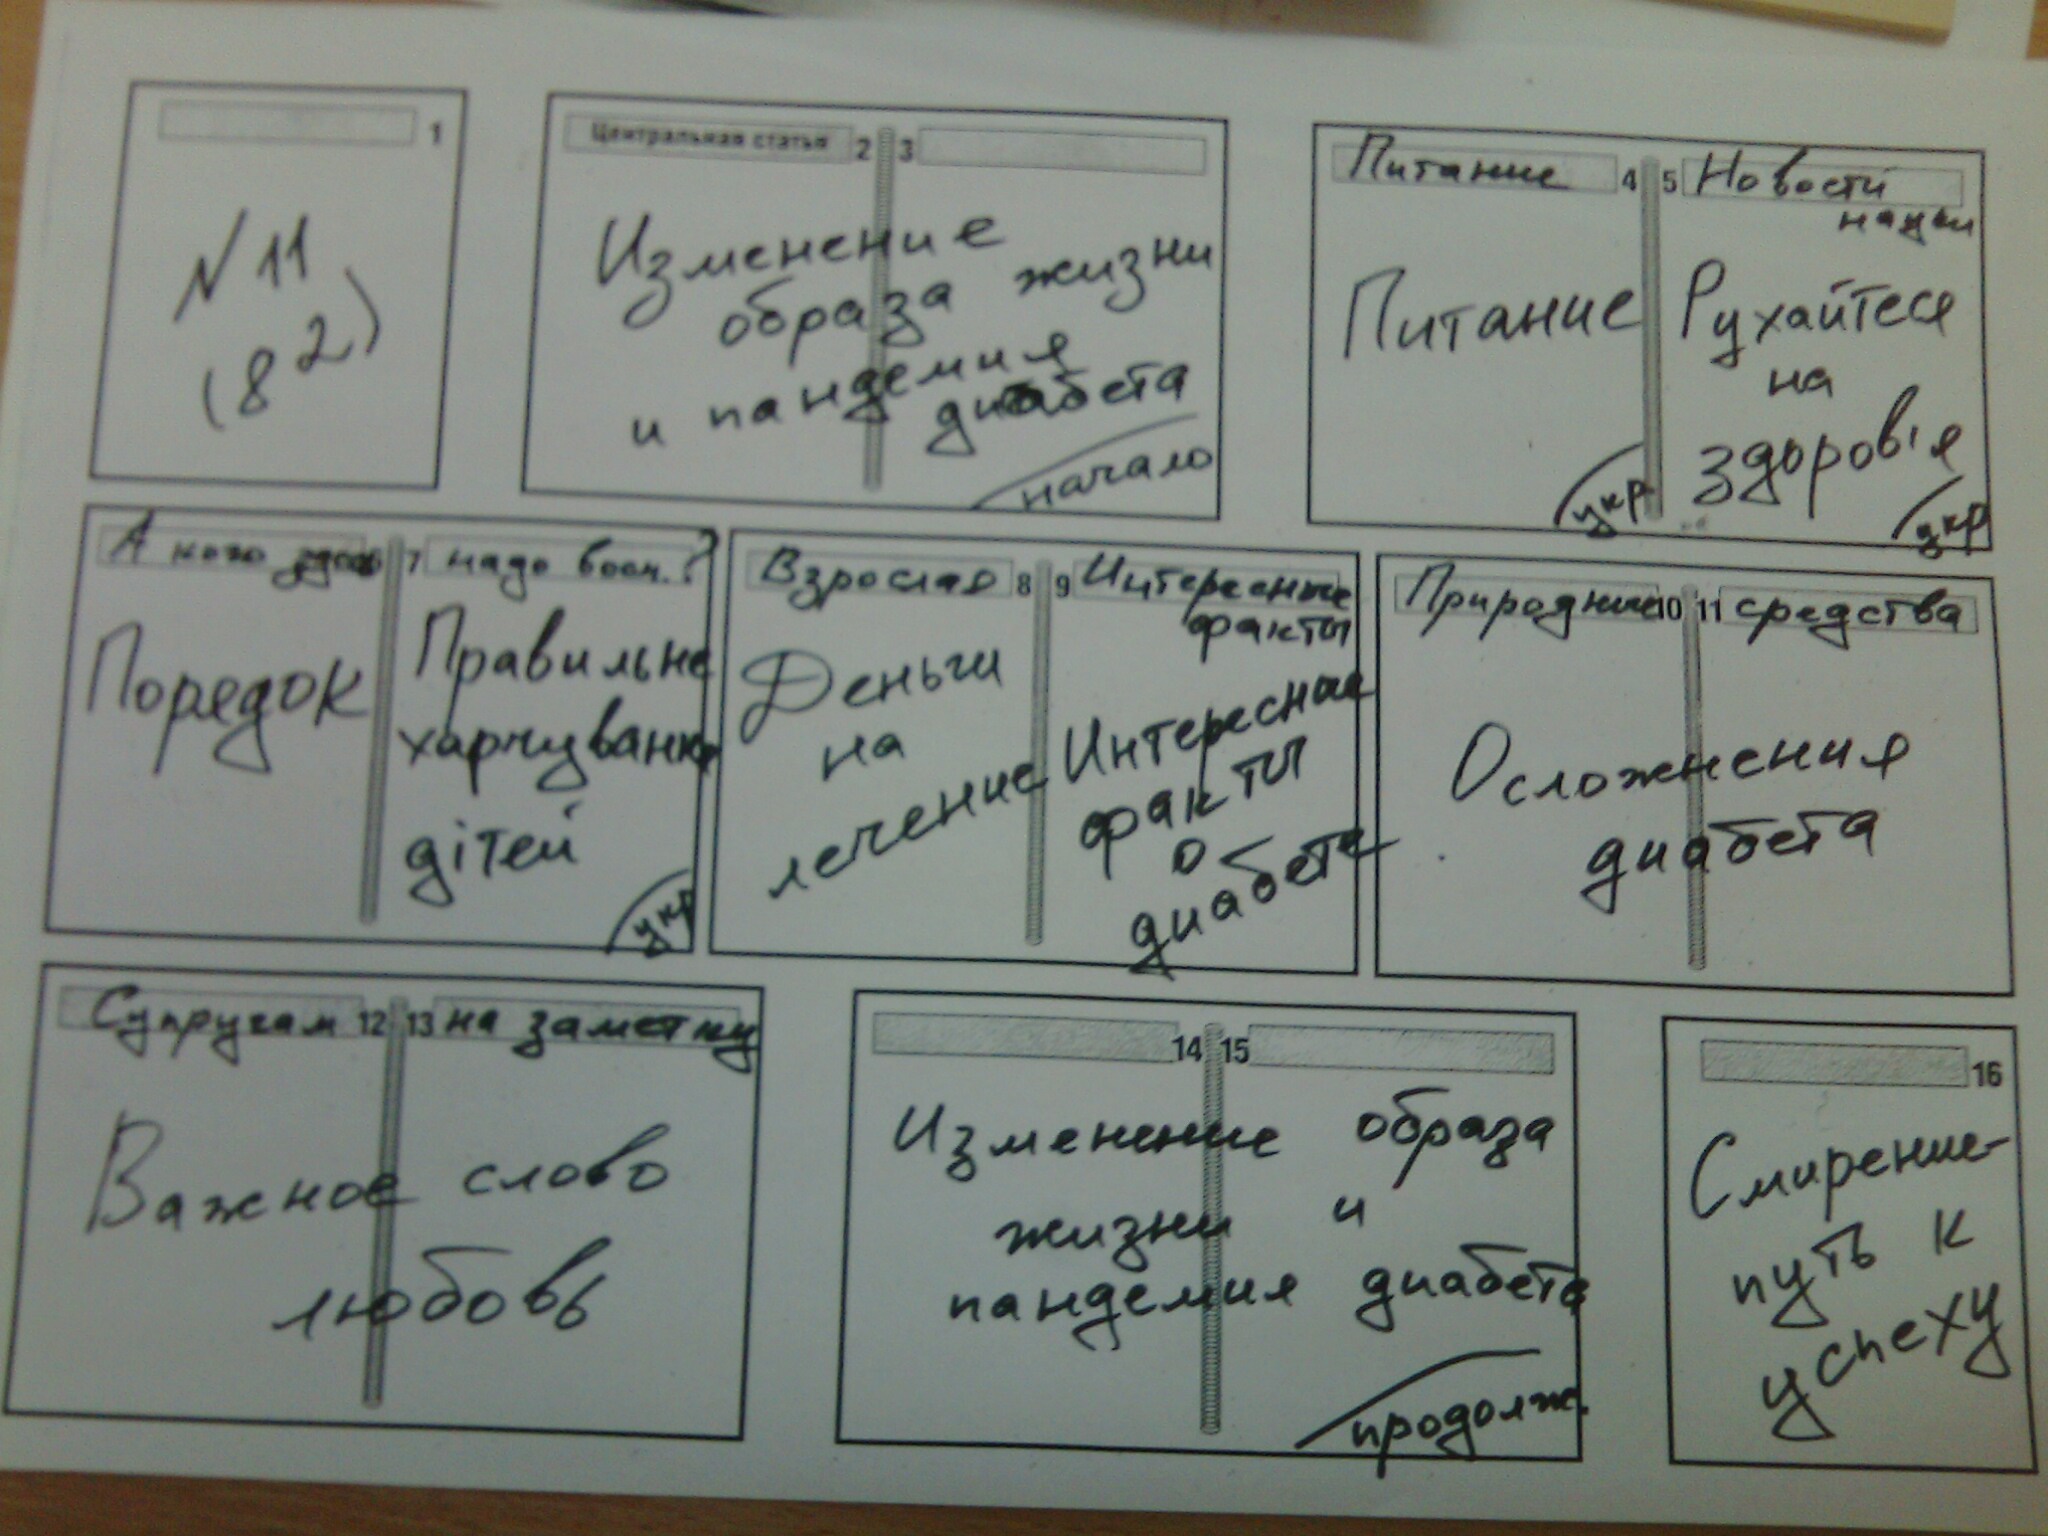 1
№ 11
(82)
Центральная статья 2 3
Изменение
образа жизни
и пандемия
диабета
начало
Питание 4
Питание
укр
5 Новости
науки
Рухайтеся
на
здоров'я
укр
А кого здесь 7 надо восп.?
Порядок
Правильне
харчування
дітей
укр
Взрослая 8
Деньги
на
лечение
9 Интересные
факты
Интересные
факты
о
диабете
Природные 10 11 средства
Осложнения
диабета
Супругам 12 13 на заметку
Важное слово
любовь
14 15
Изменение образа
жизни и
пандемия диабета
продолж.
16
Смирение-
путь к
успеху